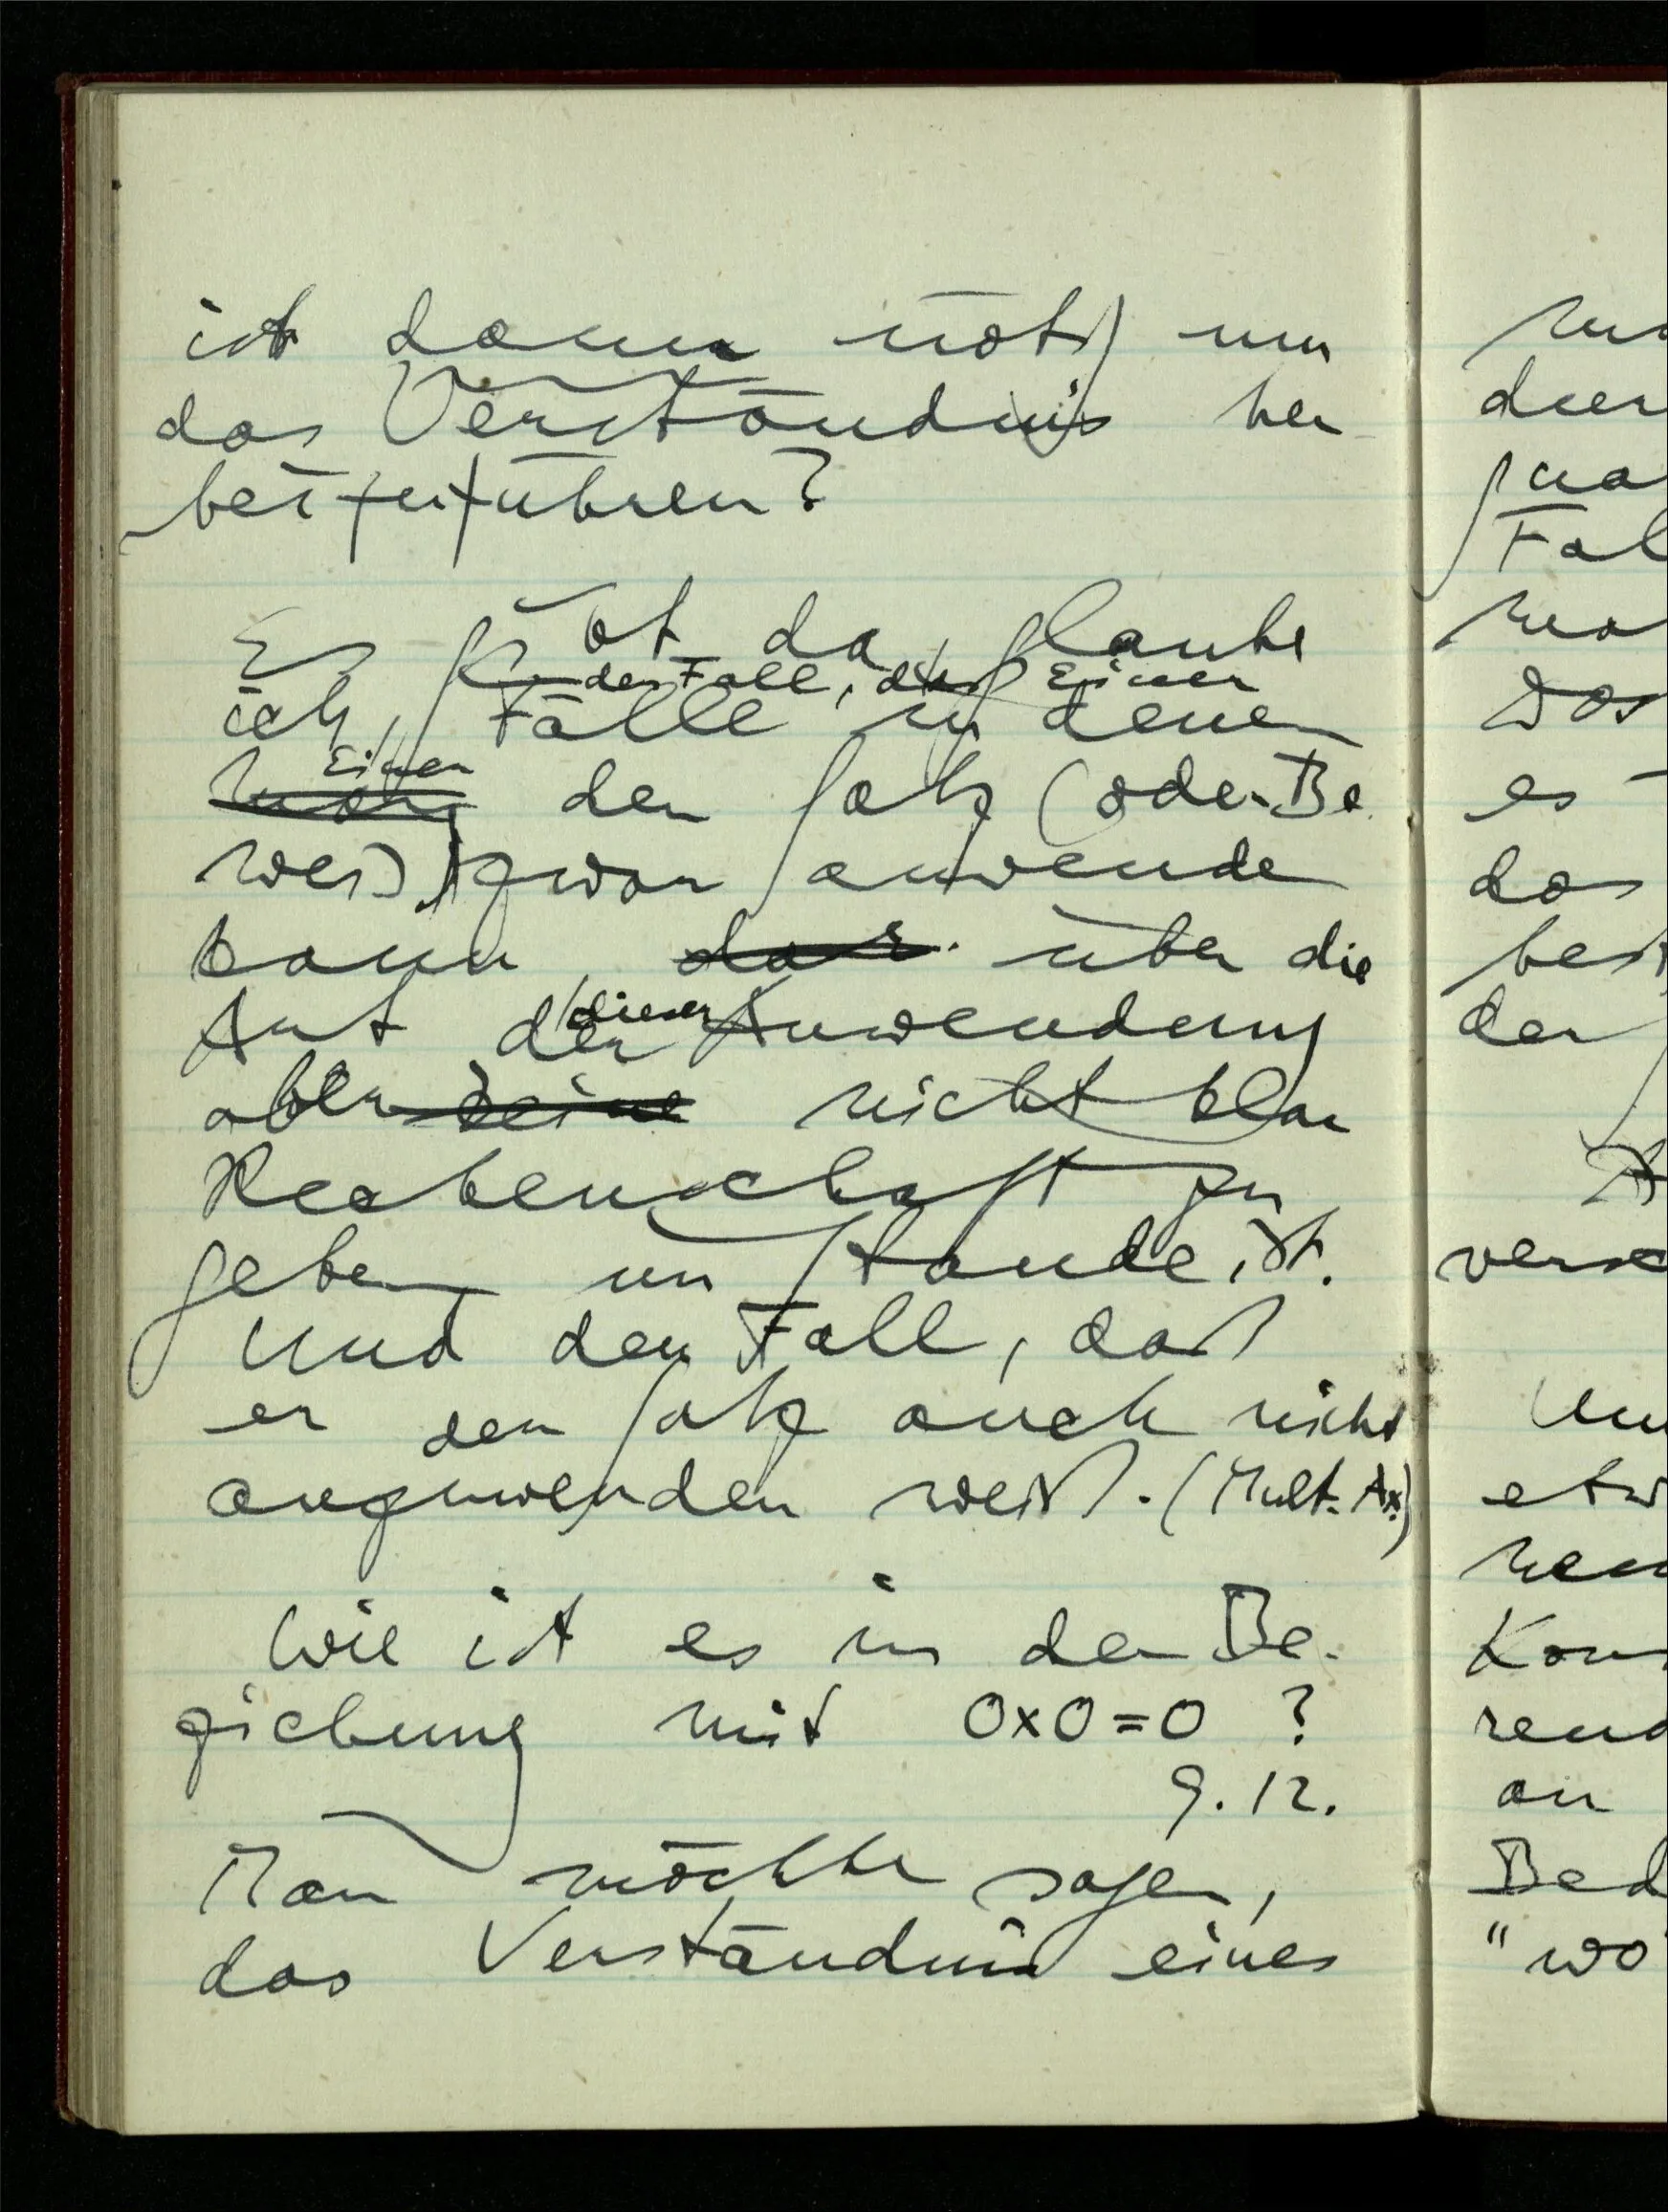 ist dann nötig um
das Verständnis her-
beizuführen?
Es gibt da, glaube
den Fall, daß Einer
ich, Fälle in denen
Einer
man den Satz (oder Be-
weis) zwar anwenden
kann, über die
Art der dieser Anwendung
aber keine nicht klar
Rechenschaft zu
geben im Stande ist.
Und den Fall, daß
er den Satz auch nicht
anzuwenden weiß. (Mult. Ax.)
Wie ist es in der Be-
ziehung mit 0x0=0 ?
9.12.
Man möchte sagen,
das Verständnis eines
Das
es
das
der
an
"wo